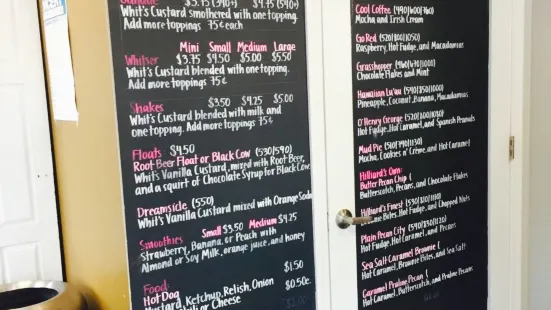 $3.75 (390+) $4.75 (590+)
Whit's Custard smothered with one topping.
Add more toppings 75¢ each
Mini Small Medium Large
Whitser $3.75 $4.50 $5.00 $5.50
Whit's Custard blended with one topping.
Add more toppings 75¢
Shakes $3.50 $4.25 $5.00
Whit's Custard blended with milk and
one topping. Add more toppings 75¢
Floats $4.50
Root Beer Float or Black Cow (530/590)
Whit's Vanilla Custard, mixed with Root Beer,
and a squirt of Chocolate Syrup for Black Cow
Dreamsicle (550)
Whit's Vanilla Custard mixed with Orange Soda
Smoothies Small $3.50 Medium $4.25
Strawberry, Banana, or Peach with
Almond or Soy Milk, orange juice, and honey
Food:
Hot Dog $1.50
Mustard, Ketchup, Relish, Onion
Chili or Cheese 0.50¢
$2.00
Cool Coffee
Mocha and Irish Cream
Go Red (520/800/1050)
Raspberry, Hot Fudge, and Macadamias
Grasshopper
Chocolate Flakes and Mint
Hawaiian Lu'au
Pineapple, Coconut, Banana, Macadamias
O'Henry George (520/800/1030)
Hot Fudge, Hot Caramel, and Spanish Peanuts
Mud Pie
Mocha, Cookies n' Creme, and Hot Caramel
Hilliard's Own:
Butter Pecan Chip (
Butterscotch, Pecans, and Chocolate Flakes
Hilliard's Finest
Bites, Hot Fudge, and Chopped Nuts
Plain Pecan City
Hot Fudge, Hot Caramel, and Pecans
Sea Salt Caramel Brownie (
Hot Caramel, Brownie Bites, and Sea Salt
Caramel Praline Pecan (
Hot Caramel, Butterscotch, and Praline Pecans